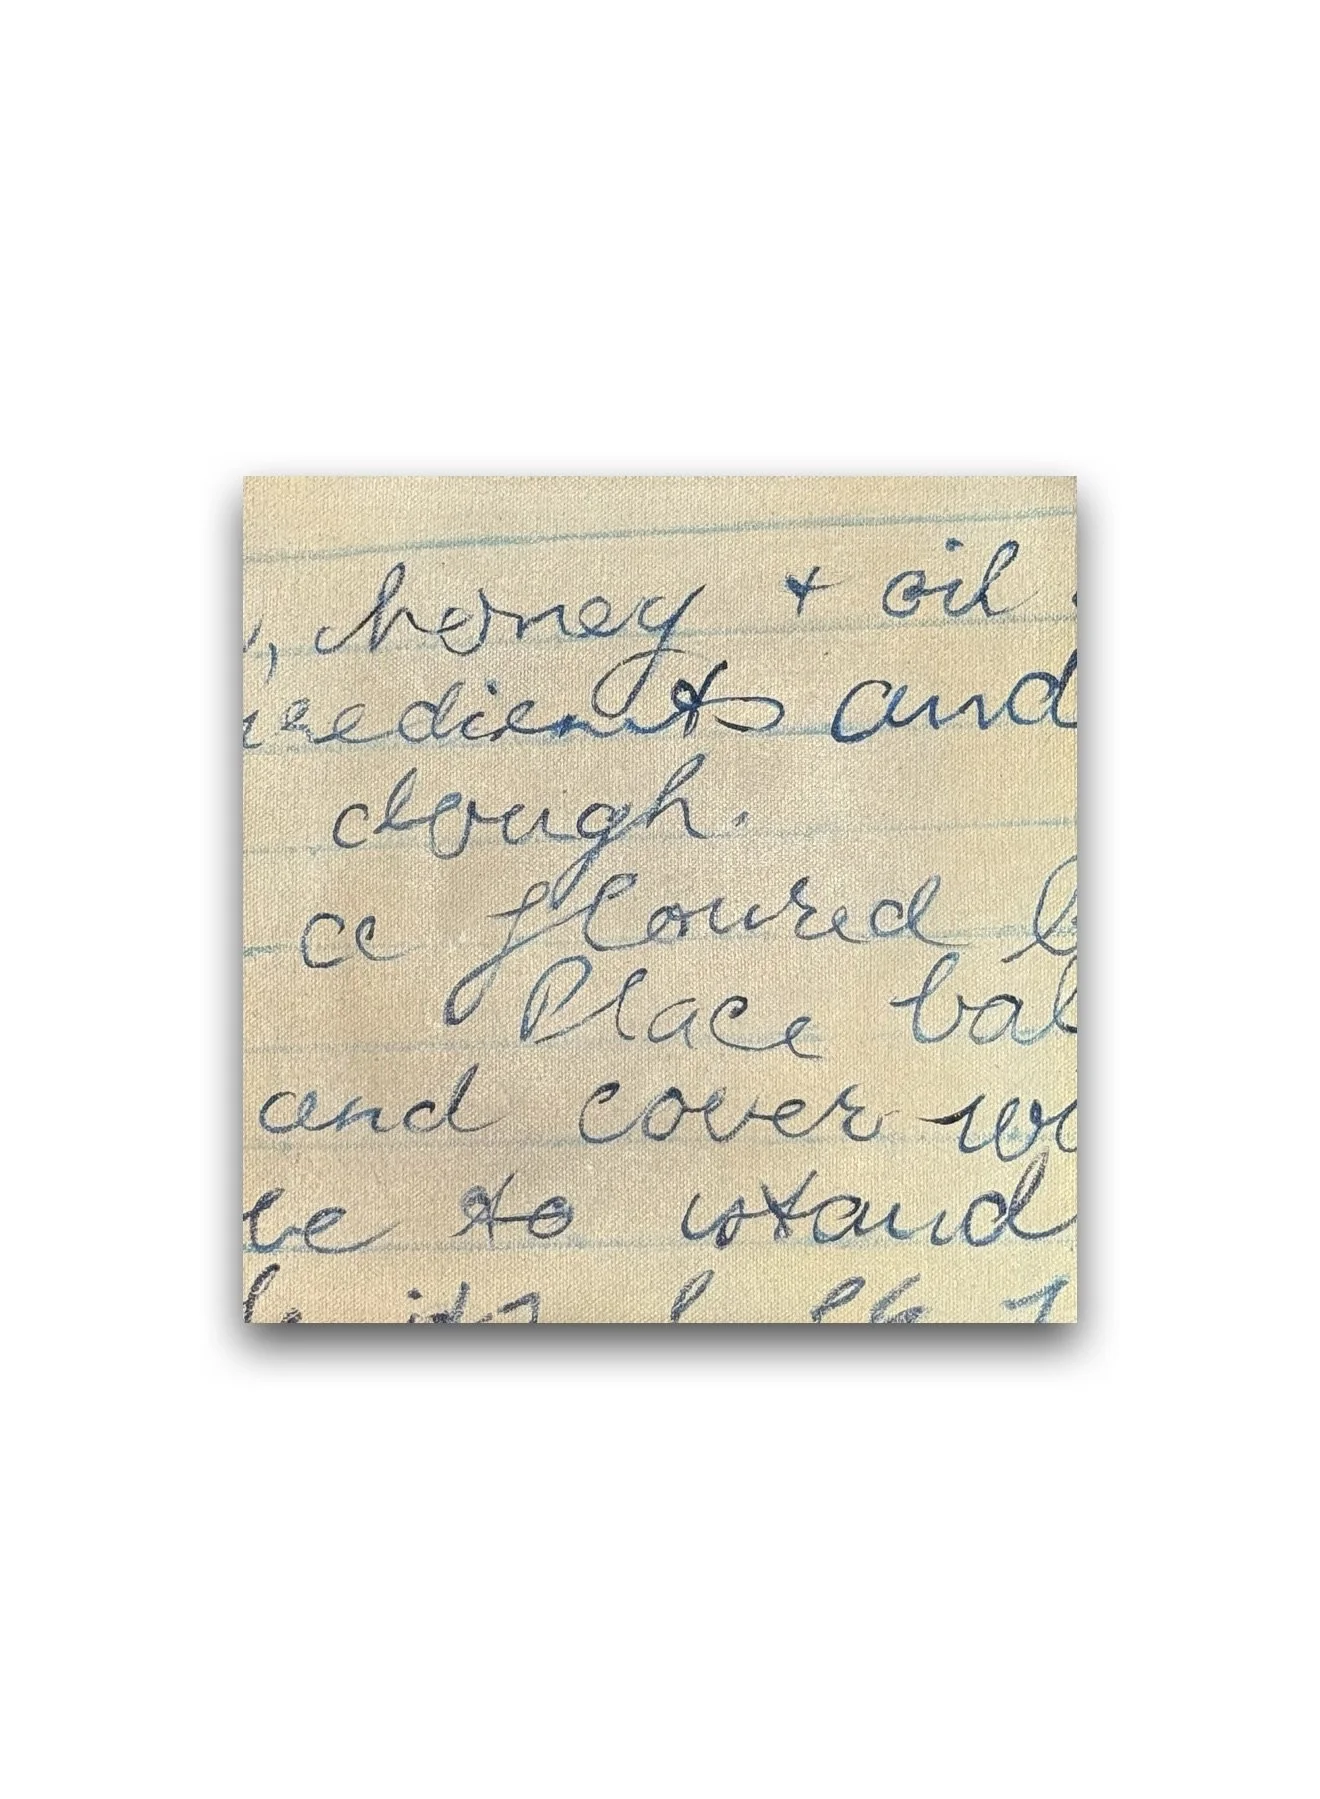 , honey + oil
redients and
dough.
a floured
Place bal
and cover
be to stand